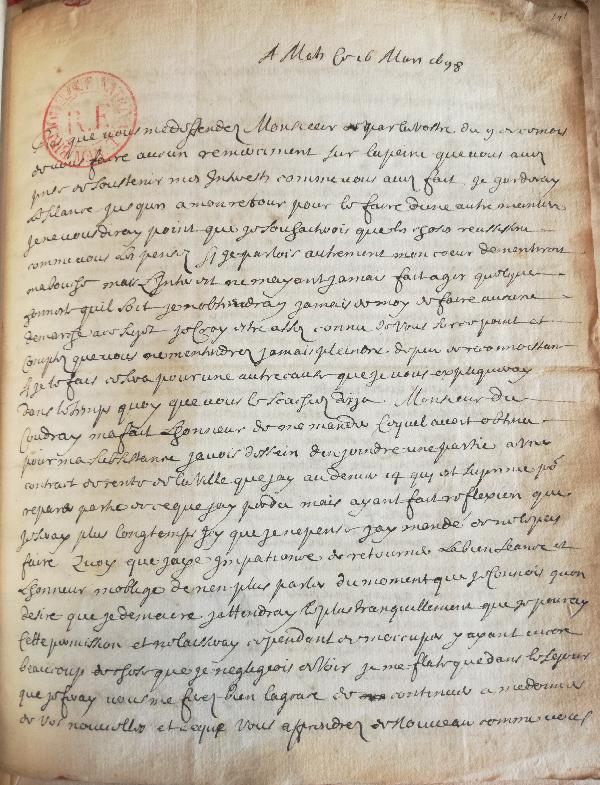 141
A Mets ce 16 Mars 1698
que vous me deffendez Monsieur par la vostre du 9 de ce mois
de vous faire aucun remerciment sur la peine que vous avez
prise de soustenir mes Interests comme vous avez fait je garderay
le silance jusqu'a mon retour pour le faire d'une autre maniere
je ne vous diray point que je souhaitrois que la chose reussisse
comme vous le pensez si je parlois autrement mon coeur dementiroit
ma bouche mais l'Interest ne mayant jamais fait agir quelque
honneste quil soit je nobtiendray jamais de moy de faire aucune
demarche a ce sujet je croy estre assez connu de vous sur ce point et
comptez que vous ne mentendrez jamais pleindre de peu de reconnoissance
si je le fais ce sera pour une autre cause que je vous expliqueray
dans le temps quoy que vous le scachiez deja Monsieur du
Coudray ma fait Lhonneur de me mander ce quel avoit obtenu
pour ma subsistance javois dessein den joindre une partie a une
contract de rente de la ville que jay au denier 14 qui est suprimé po
reparer partie de ce que jay perdu mais ayant fait reflexion que
je seray plus longtemps icy que je ne pensé jay mandé de ne le pas
faire Quoy que jaye Impatiance de retourner La bienseance et
Lhonneur moblige de men plus parler du moment que je connois quon
desire que je demeure jattendray le plus tranquillement que je pouray
cette permission et ne laisseray cependant de moccuper y ayant encore
beaucoup de chose que je negligeois de voir je me flate que dans le sejour
que je feray vous me ferez bien la grace de continuer a me donner
de vos nouvelles et ce que vous apprendrez de nouveau comme vous
R.F.